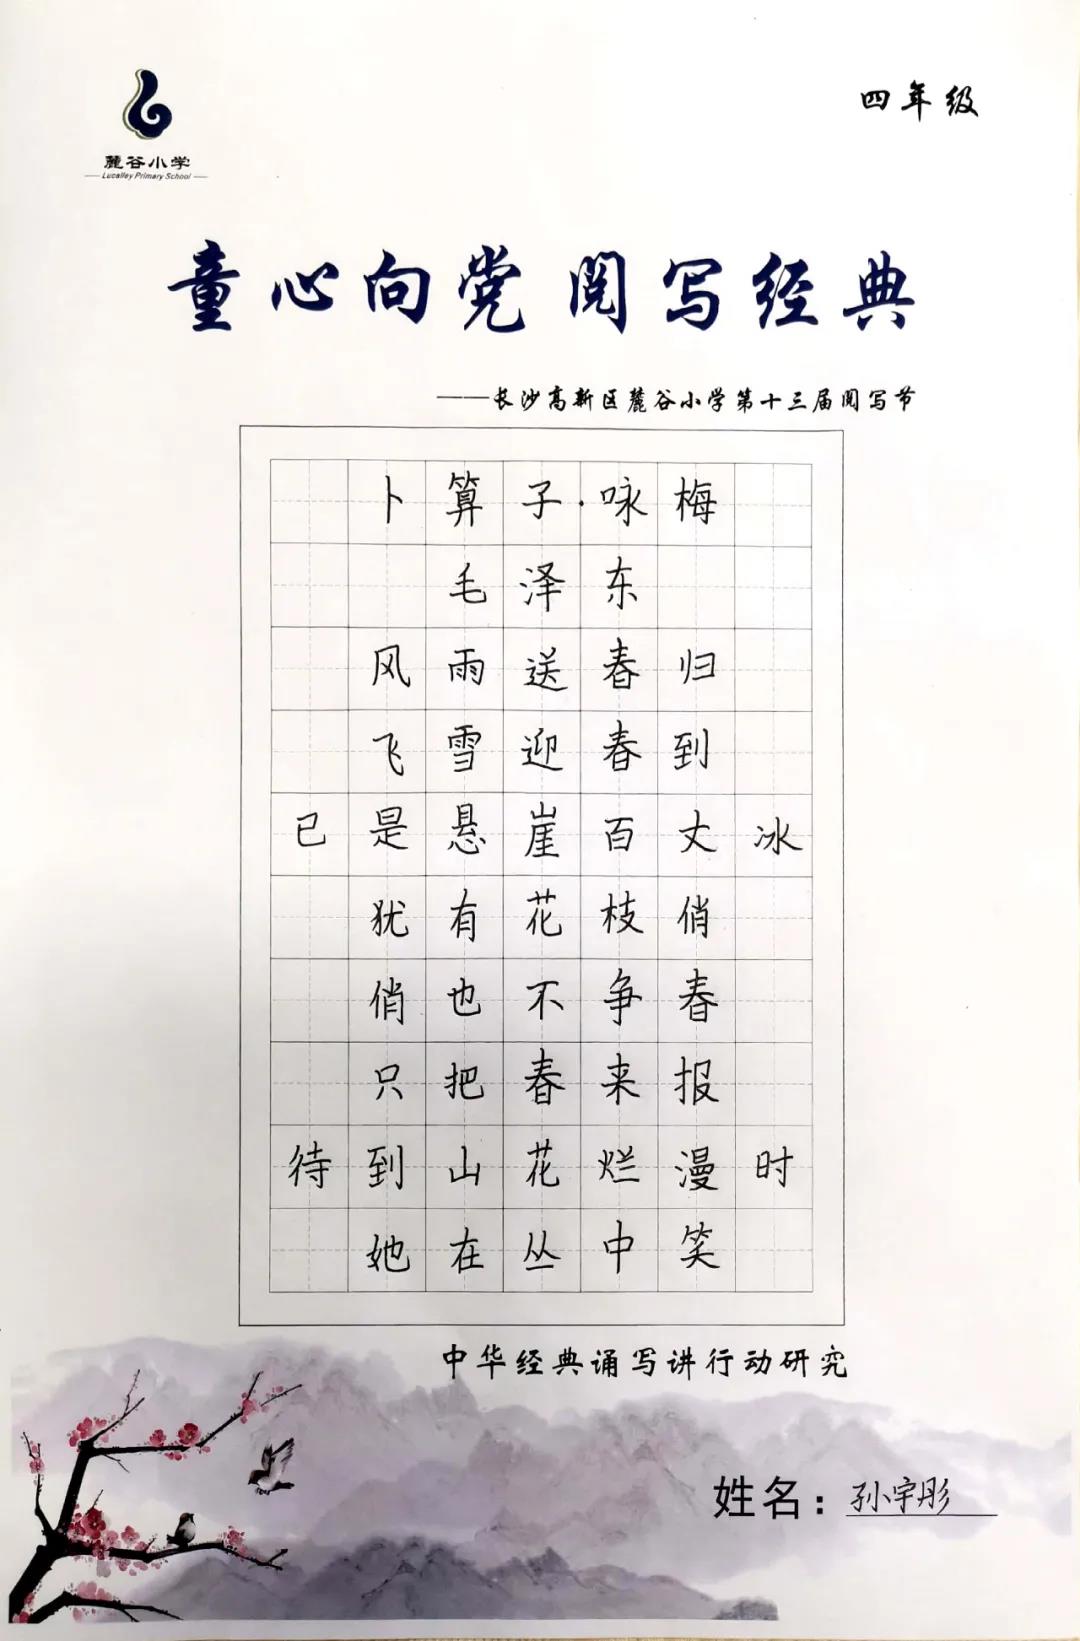 四年级
麓谷小学
Lucalley Primary School
童心向党 阅写经典
——长沙高新区麓谷小学第十三届阅写节
卜算子·咏梅
毛泽东
风雨送春归
飞雪迎春到
已是悬崖百丈冰
犹有花枝俏
俏也不争春
只把春来报
待到山花烂漫时
她在丛中笑
中华经典诵写讲行动研究
姓名：孙宇彤